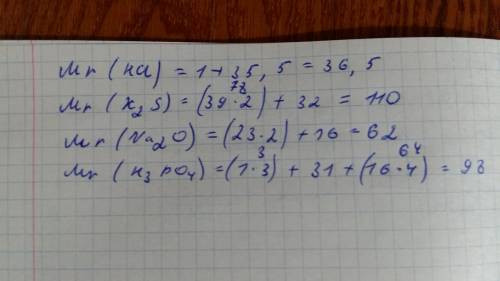 Mr (HCl) = 1 + 35,5 = 36,5
Mr (K₂S) = (39·2) + 32 = 110
78
Mr (Na₂O) = (23·2) + 16 = 62
Mr (H₃PO₄) = (1·3) + 31 + (16·4) = 98
3 64